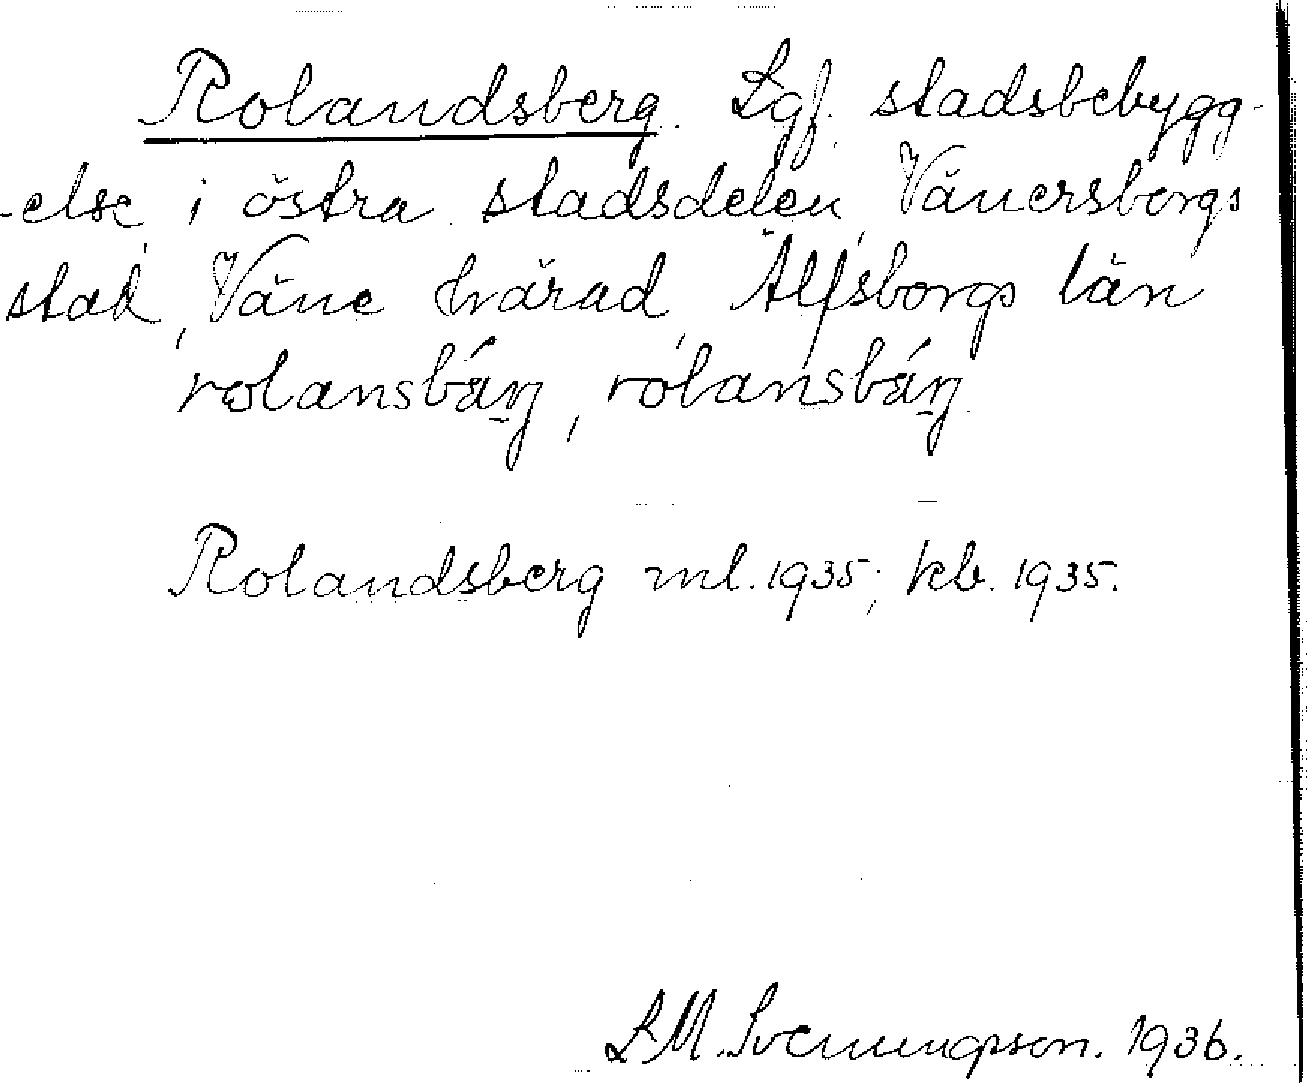 Rolandsberg. Lgf. stadsbebygg-
-else i östra stadsdelen, Vänersborgs
stad, Väne härad, Älfsborgs län
Rolandsberg ml. 1935; kb. 1935.
1936.